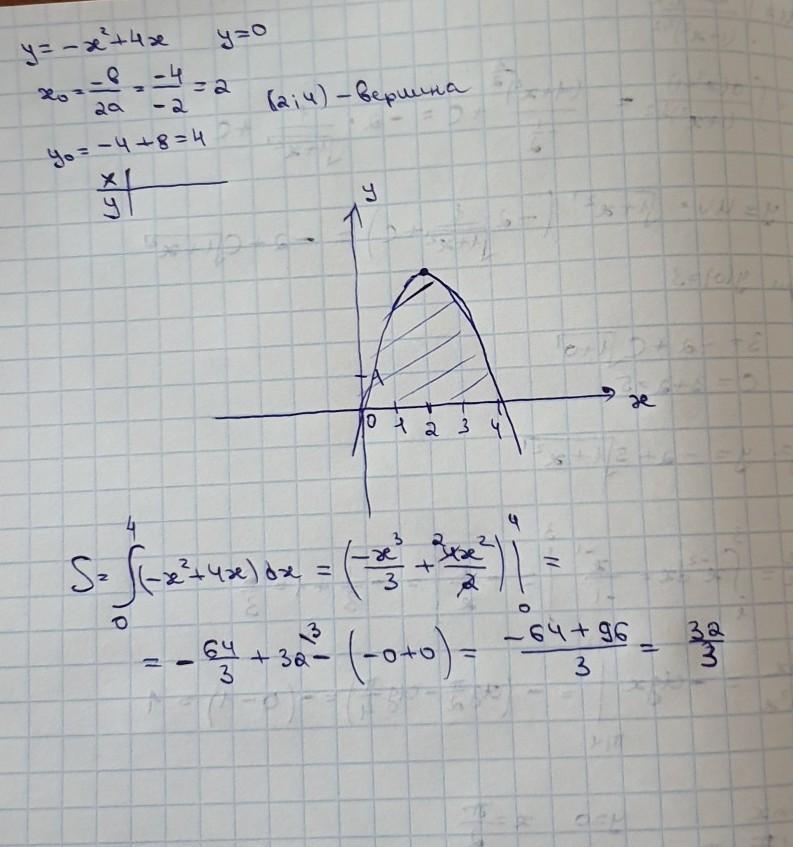 y = -x²+4x y=0
x₀ = -в/2a = -4/-2 = 2 (2;4) - вершина
y₀ = -4+8=4
x
y
y
1
0 1 2 3 4 x
S = ∫₀⁴ (-x²+4x) dx = (-x³/3 + 4x²/2)|₀⁴ =
= -64/3 + 32 - (-0+0) = (-64+96)/3 = 32/3